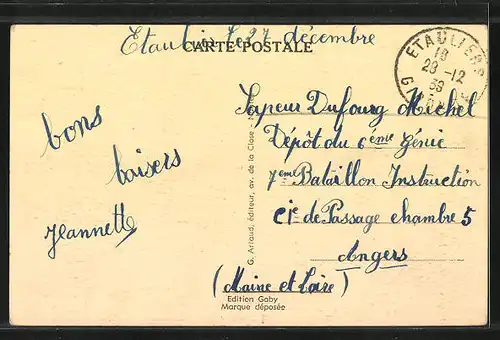 Etauliers le 27 décembre
CARTE POSTALE
ETAULIERS
18
28-12
39
G
bons
baisers
Jeannette
Sapeur Dufourg Michel
Dépôt du 6ème Génie
7ème Bataillon Instruction
Cie de Passage chambre 5
Angers
(Maine et Loire)
G. Artaud, éditeur, av. de la Close
Edition Gaby
Marque déposée